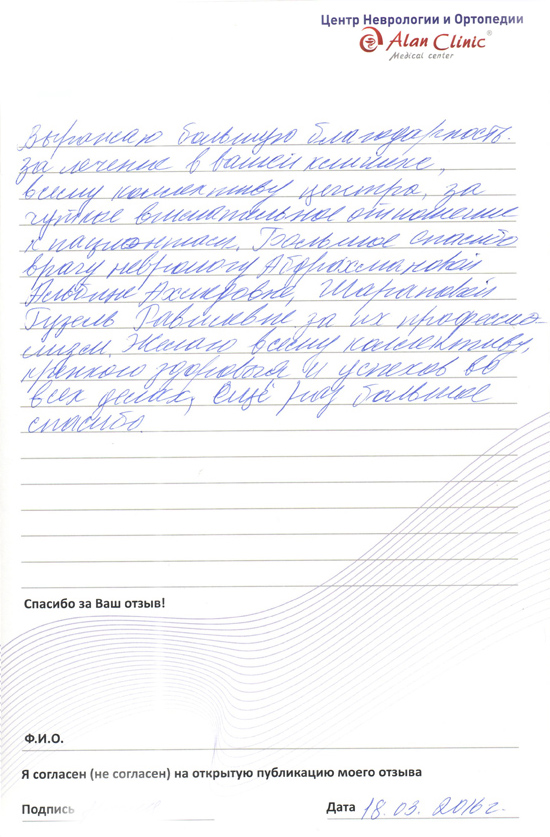 Центр Неврологии и Ортопедии
Alan Clinic®
Medical center
Выражаю большую благодарность
за лечение в вашей клинике,
всему коллективу центра, за
чуткое внимательное отношение
к пациентам. Большое спасибо
врачу неврологу Абдрахмановой
Альбине Ахияровне, Шараповой
Гузель Равилевне за их професио-
лизм. Желаю всему коллективу,
крепкого здоровья и успехов во
всех делах, ещё раз большое
спасибо.
Спасибо за Ваш отзыв!
Ф.И.О.
Я согласен (не согласен) на открытую публикацию моего отзыва
Подпись
Дата 18.03.2016 г.